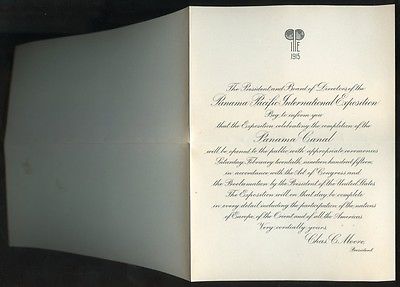 PPIE
1915
The President and Board of Directors of the
Panama Pacific International Exposition
Beg to inform you
that the Exposition celebrating the completion of the
Panama Canal
will be opened to the public with appropriate ceremonies
Saturday, February twentieth, nineteen hundred fifteen,
in accordance with the Act of Congress and
the Proclamation by the President of the United States.
The Exposition will on that day, be complete
in every detail including the participation of the nations
of Europe, of the Orient and of all the Americas
Very cordially yours
Chas. C. Moore,
President